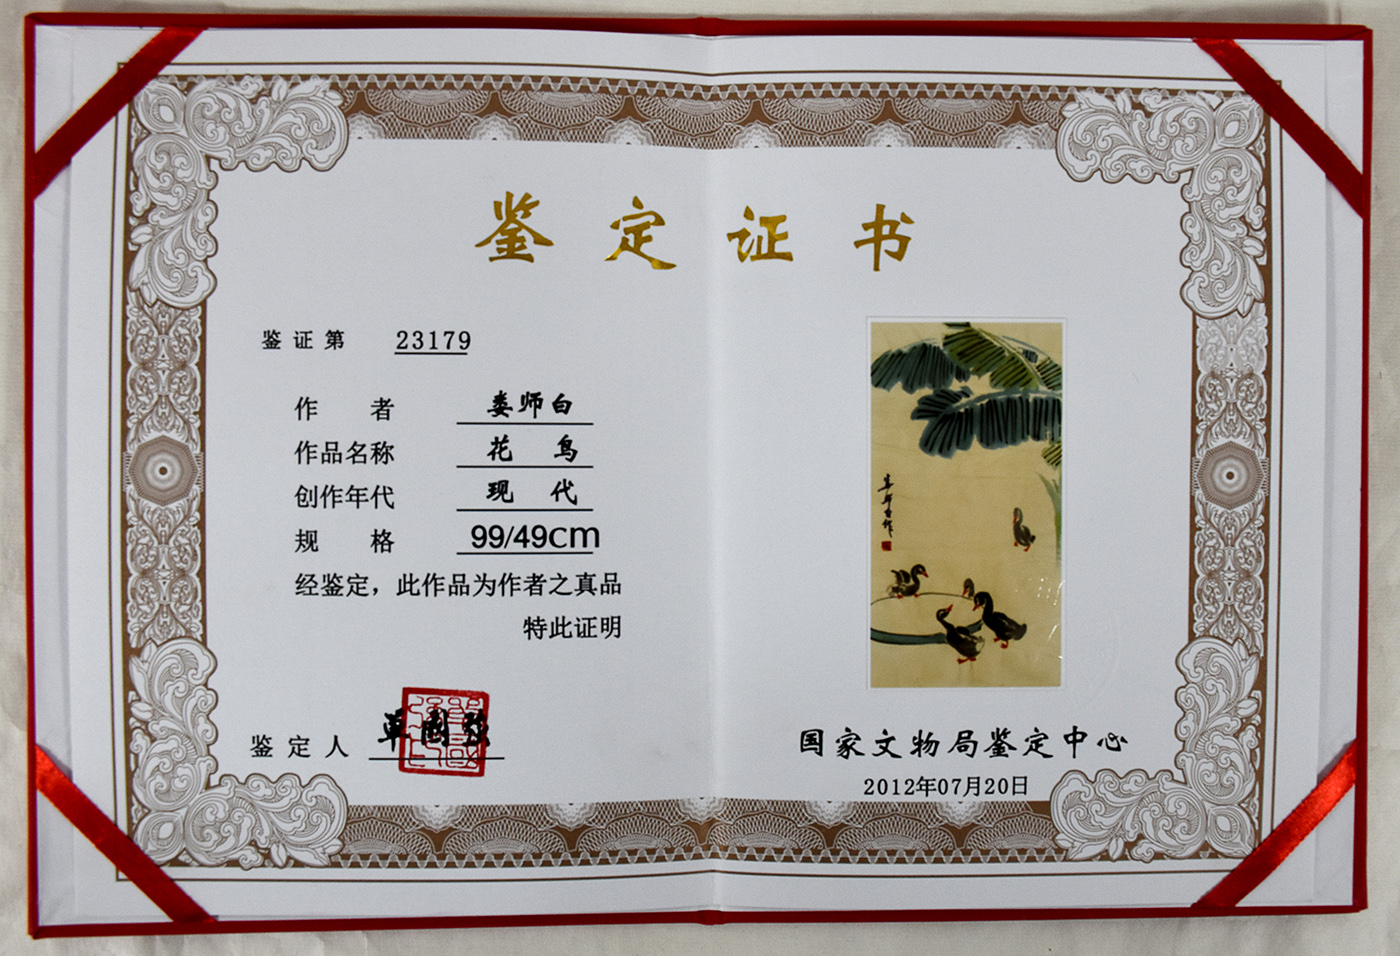 鉴定证书
鉴证第 23179
作者 娄师白
作品名称 花鸟
创作年代 现代
规格 99/49cm
经鉴定，此作品为作者之真品
特此证明
鉴定人 单国强
娄师白作
国家文物局鉴定中心
2012年07月20日